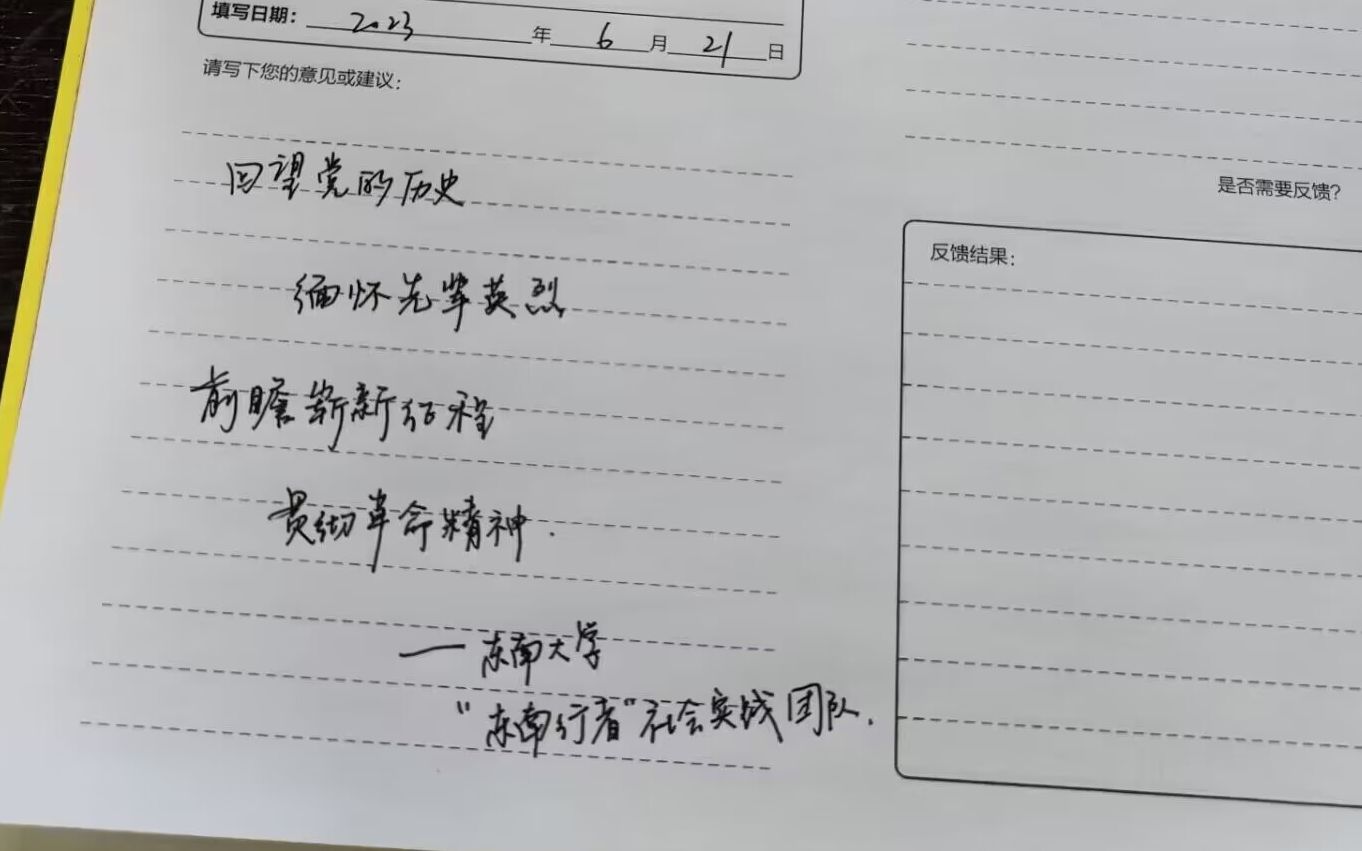 填写日期: 2023 年 6 月 21 日
请写下您的意见或建议:
回望党的历史
缅怀先辈英烈
前瞻崭新征程
贯彻革命精神.
——东南大学
“东南行者”社会实践团队.
是否需要反馈?
反馈结果: